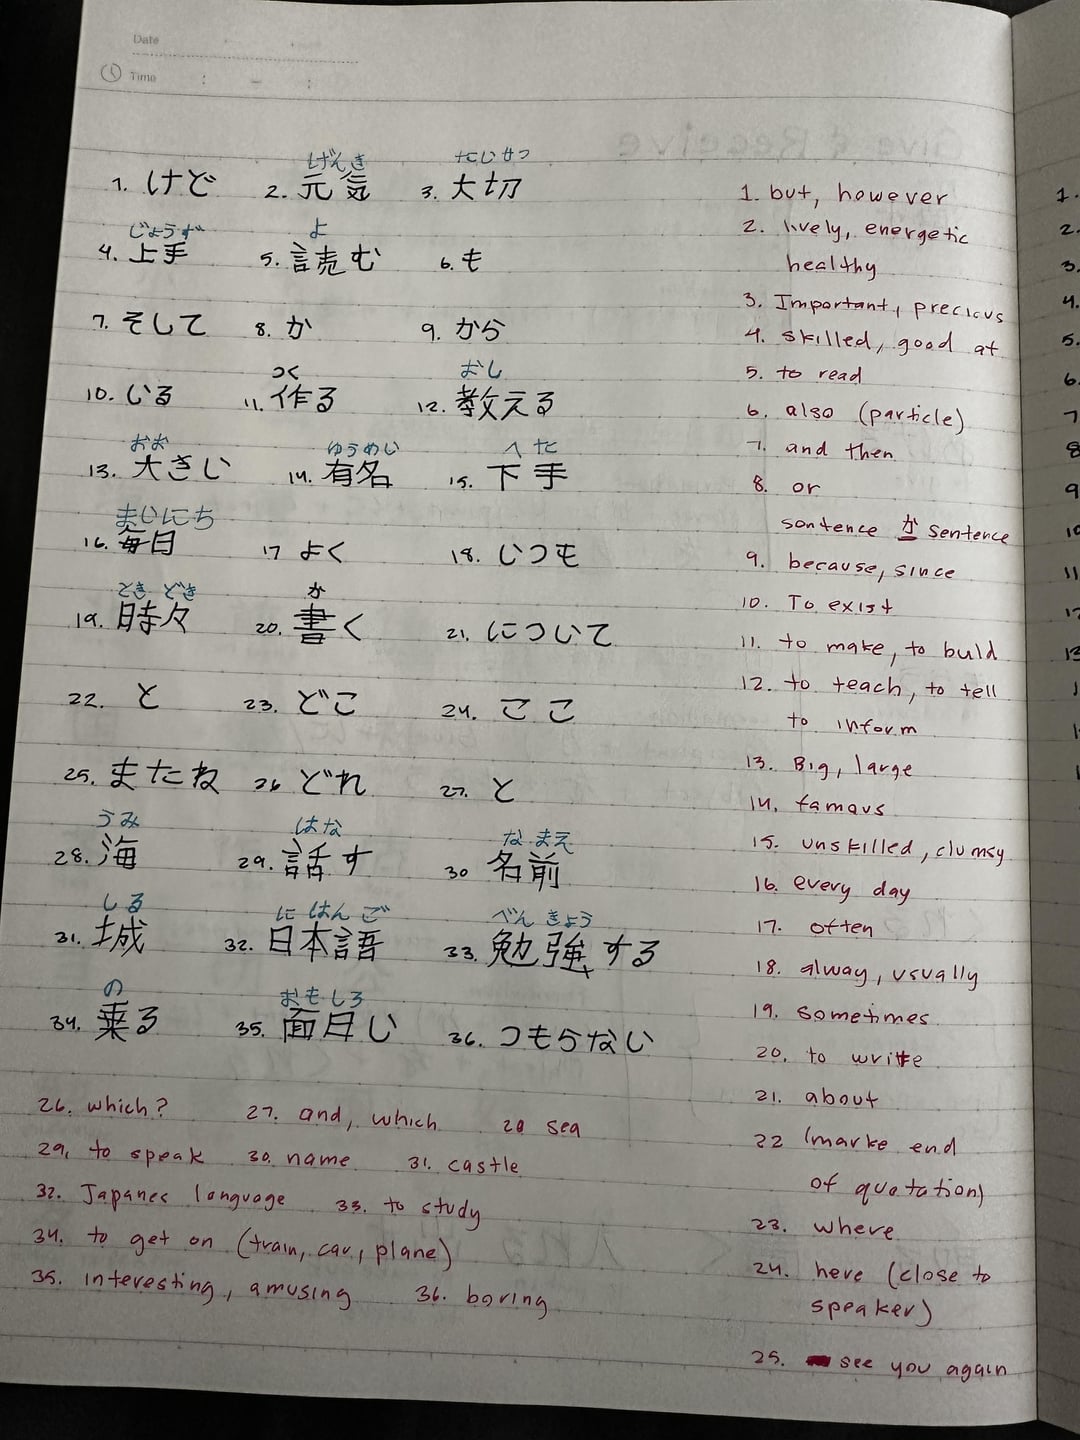 Date
Time : – :
げんき たいせつ
1. けど 2. 元気 3. 大切
じょうず よ
4. 上手 5. 読む 6. も
7. そして 8. か 9. から
つく おし
10. いる 11. 作る 12. 教える
おお ゆうめい へた
13. 大きい 14. 有名 15. 下手
まいにち
16. 毎日 17 よく 18. いつも
ときどき か
19. 時々 20. 書く 21. について
22. と 23. どこ 24. ここ
25. またね 26 どれ 27. と
うみ はな なまえ
28. 海 29. 話す 30 名前
しる にほんご べんきょう
31. 城 32. 日本語 33. 勉強する
の おもしろ
34. 乗る 35. 面白い 36. つもらない
26. which? 27. and, which 28 sea
29. to speak 30. name 31. castle
32. Japanes language 33. to study
34. to get on (train, car, plane)
35. interesting, amusing 36. boring
1. but, however
2. lively, energetic
healthy
3. Important, precious
4. skilled, good at
5. to read
6. also (particle)
7. and then
8. or
sentence か sentence
9. because, since
10. To exist
11. to make, to buld
12. to teach, to tell
to inform
13. Big, large
14. famous
15. unskilled, clumsy
16. every day
17. often
18. alway, usually
19. sometimes
20. to write
21. about
22 (marke end
of quotation)
23. where
24. here (close to
speaker)
25. see you again
1.
2.
3.
4.
5.
6.
7
8
9
10
11
12
13